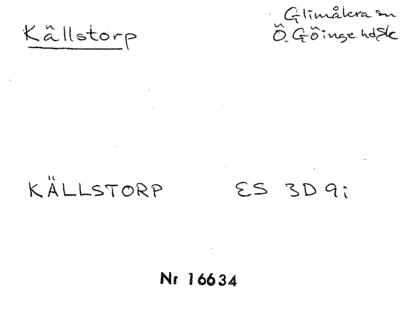 Källstorp
Glimåkra sn
Ö. Göinge hd Sk
KÄLLSTORP ES 3D 9i
Nr 16634